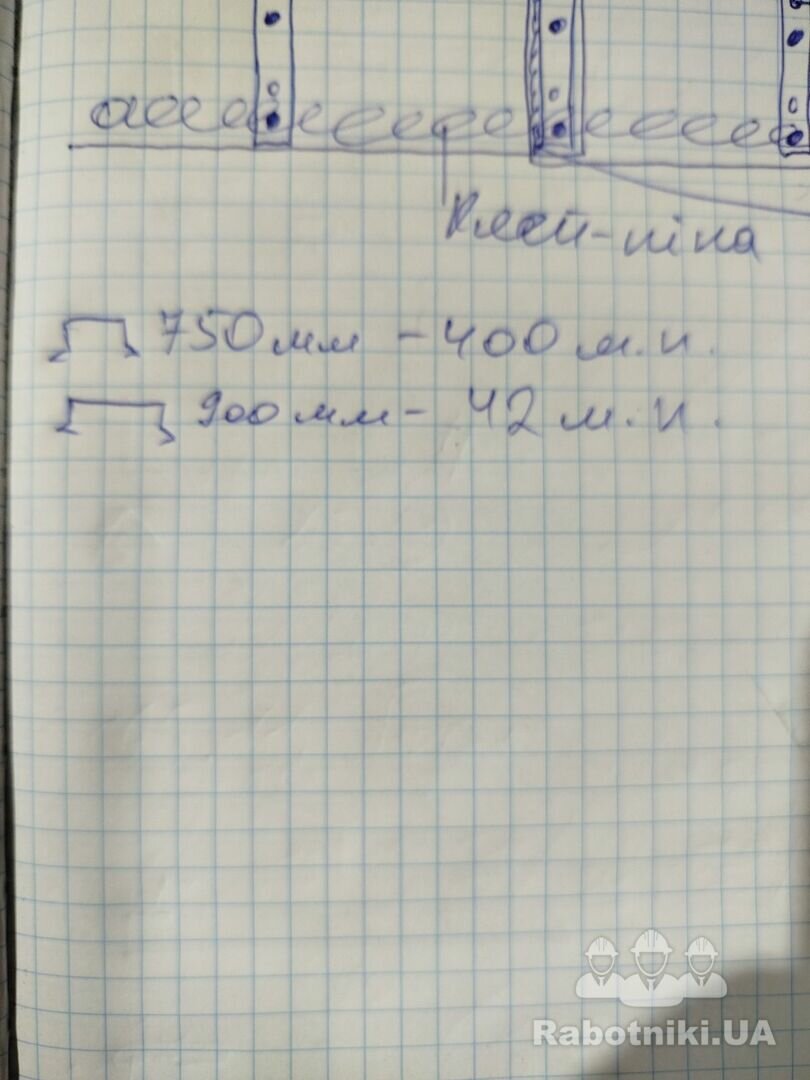 Клей-піна
750 мм - 400 м.п.
900 мм - 42 м.п.
Rabotniki.UA